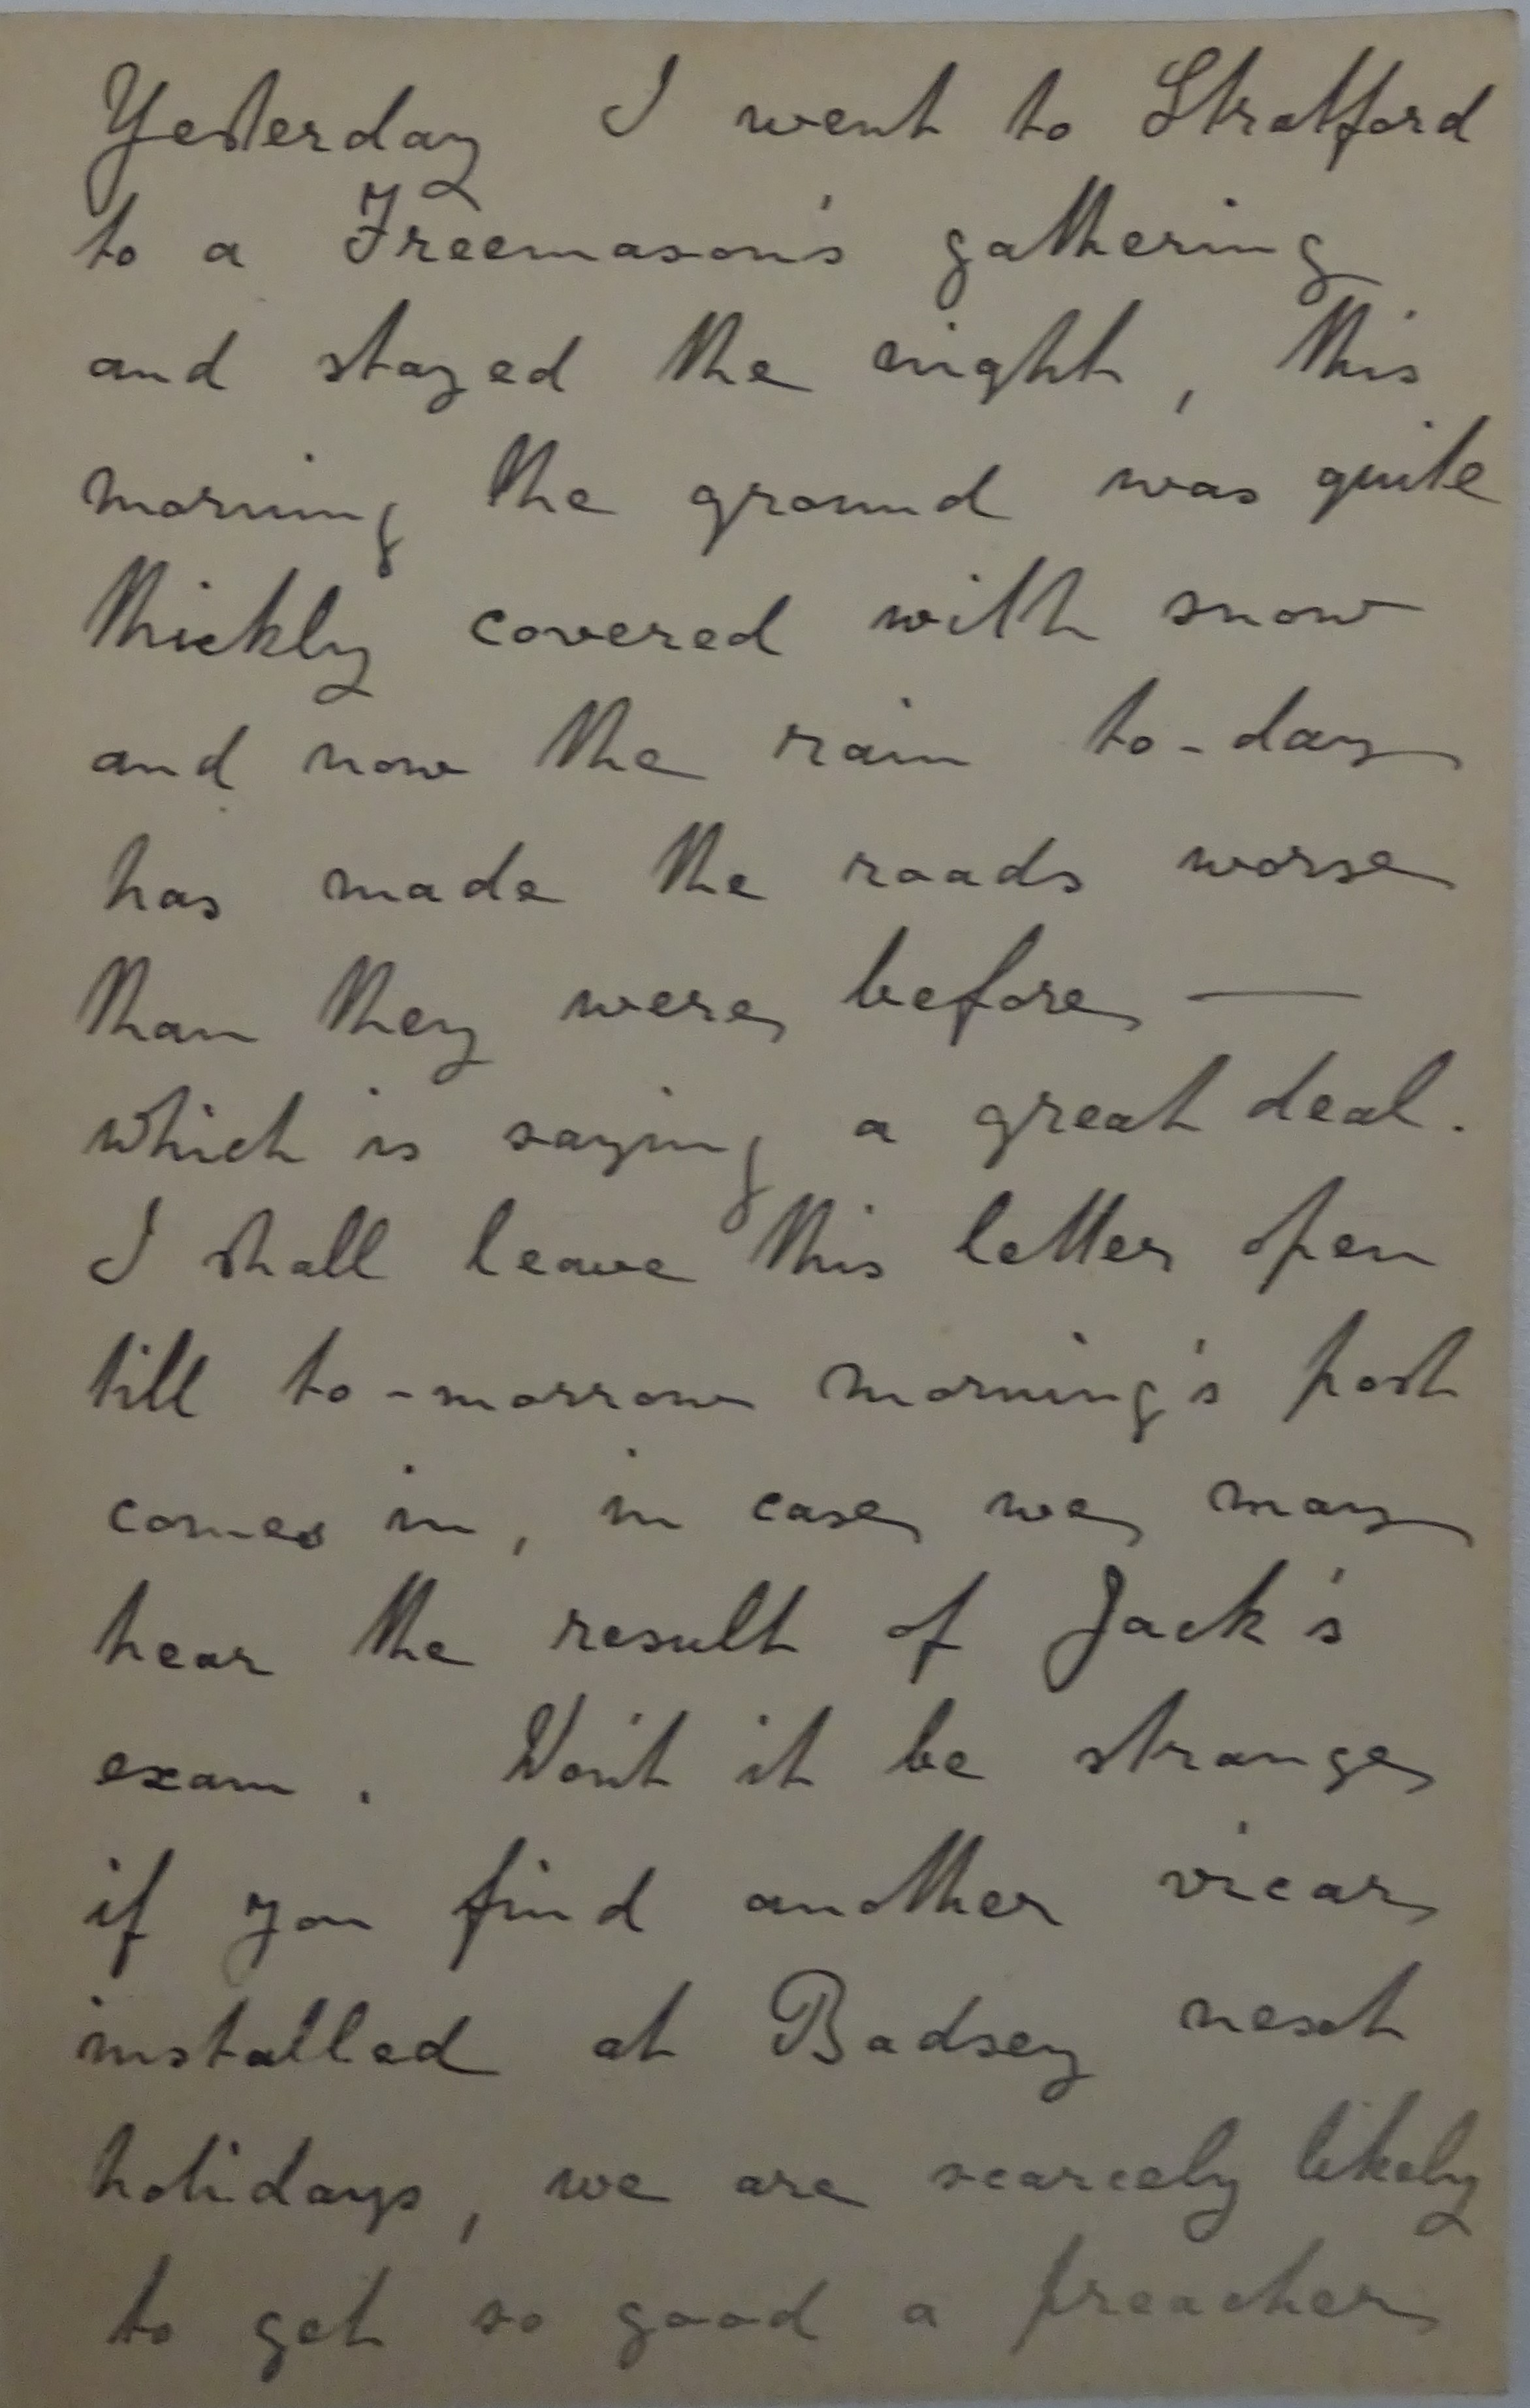 Yesterday I went to Stratford
to a Freemason's gathering
and stayed the night, this
morning the ground was quite
thickly covered with snow
and now the rain to-day
has made the roads worse
than they were before —
which is saying a great deal.
I shall leave this letter open
till to-morrow morning's post
comes in, in case we may
hear the result of Jack's
exam. Won't it be strange
if you find another vicar
installed at Badsey next
holidays, we are scarcely likely
to get so good a preacher